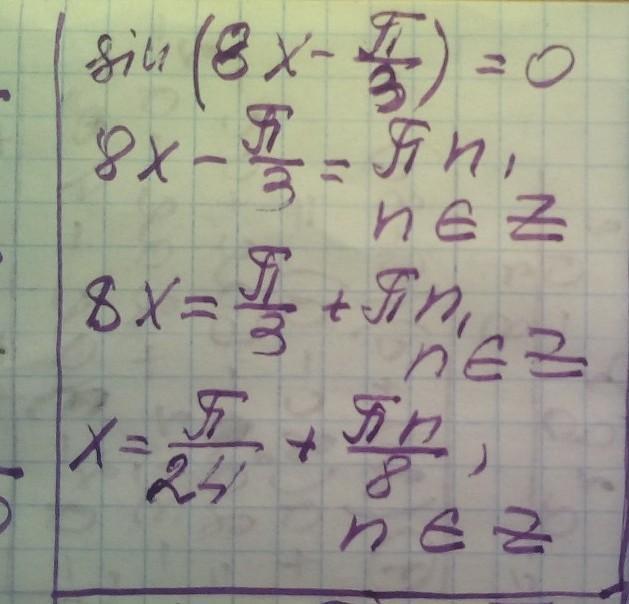 sin(8x - π/3) = 0
8x - π/3 = πn,
n ∈ Z
8x = π/3 + πn,
n ∈ Z
x = π/24 + πn/8,
n ∈ Z